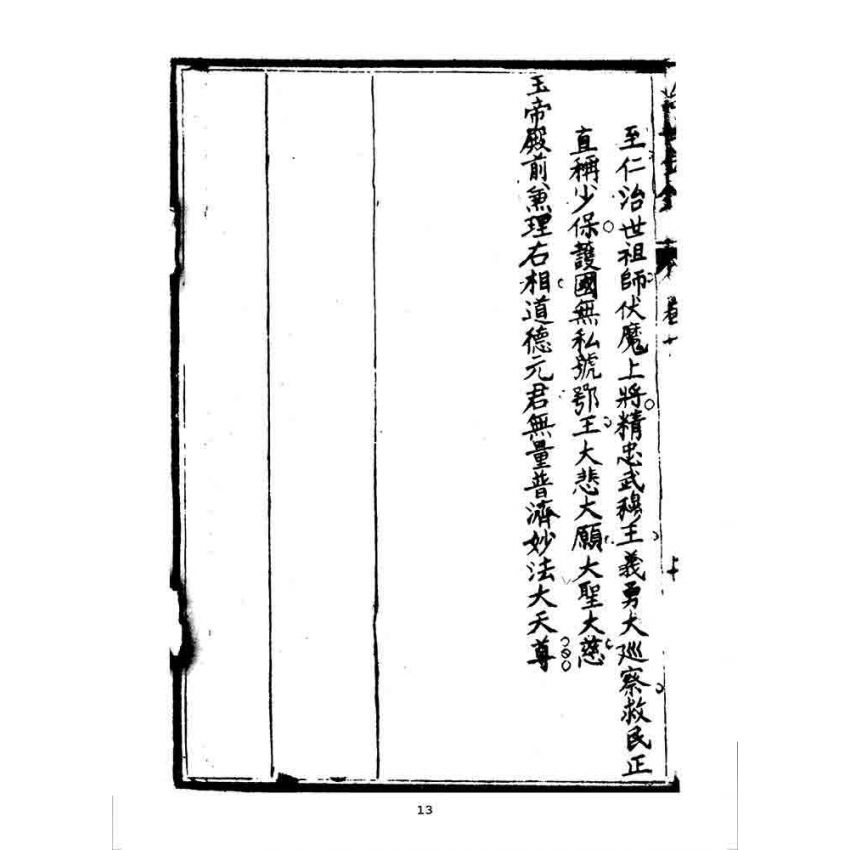 至仁治世祖師伏魔上將精忠武穆王義勇大巡察救民正
直稱少保護國無私號鄂王大悲大願大聖大慈
玉帝殿前兼理右相道德元君無量普濟妙法大天尊
13